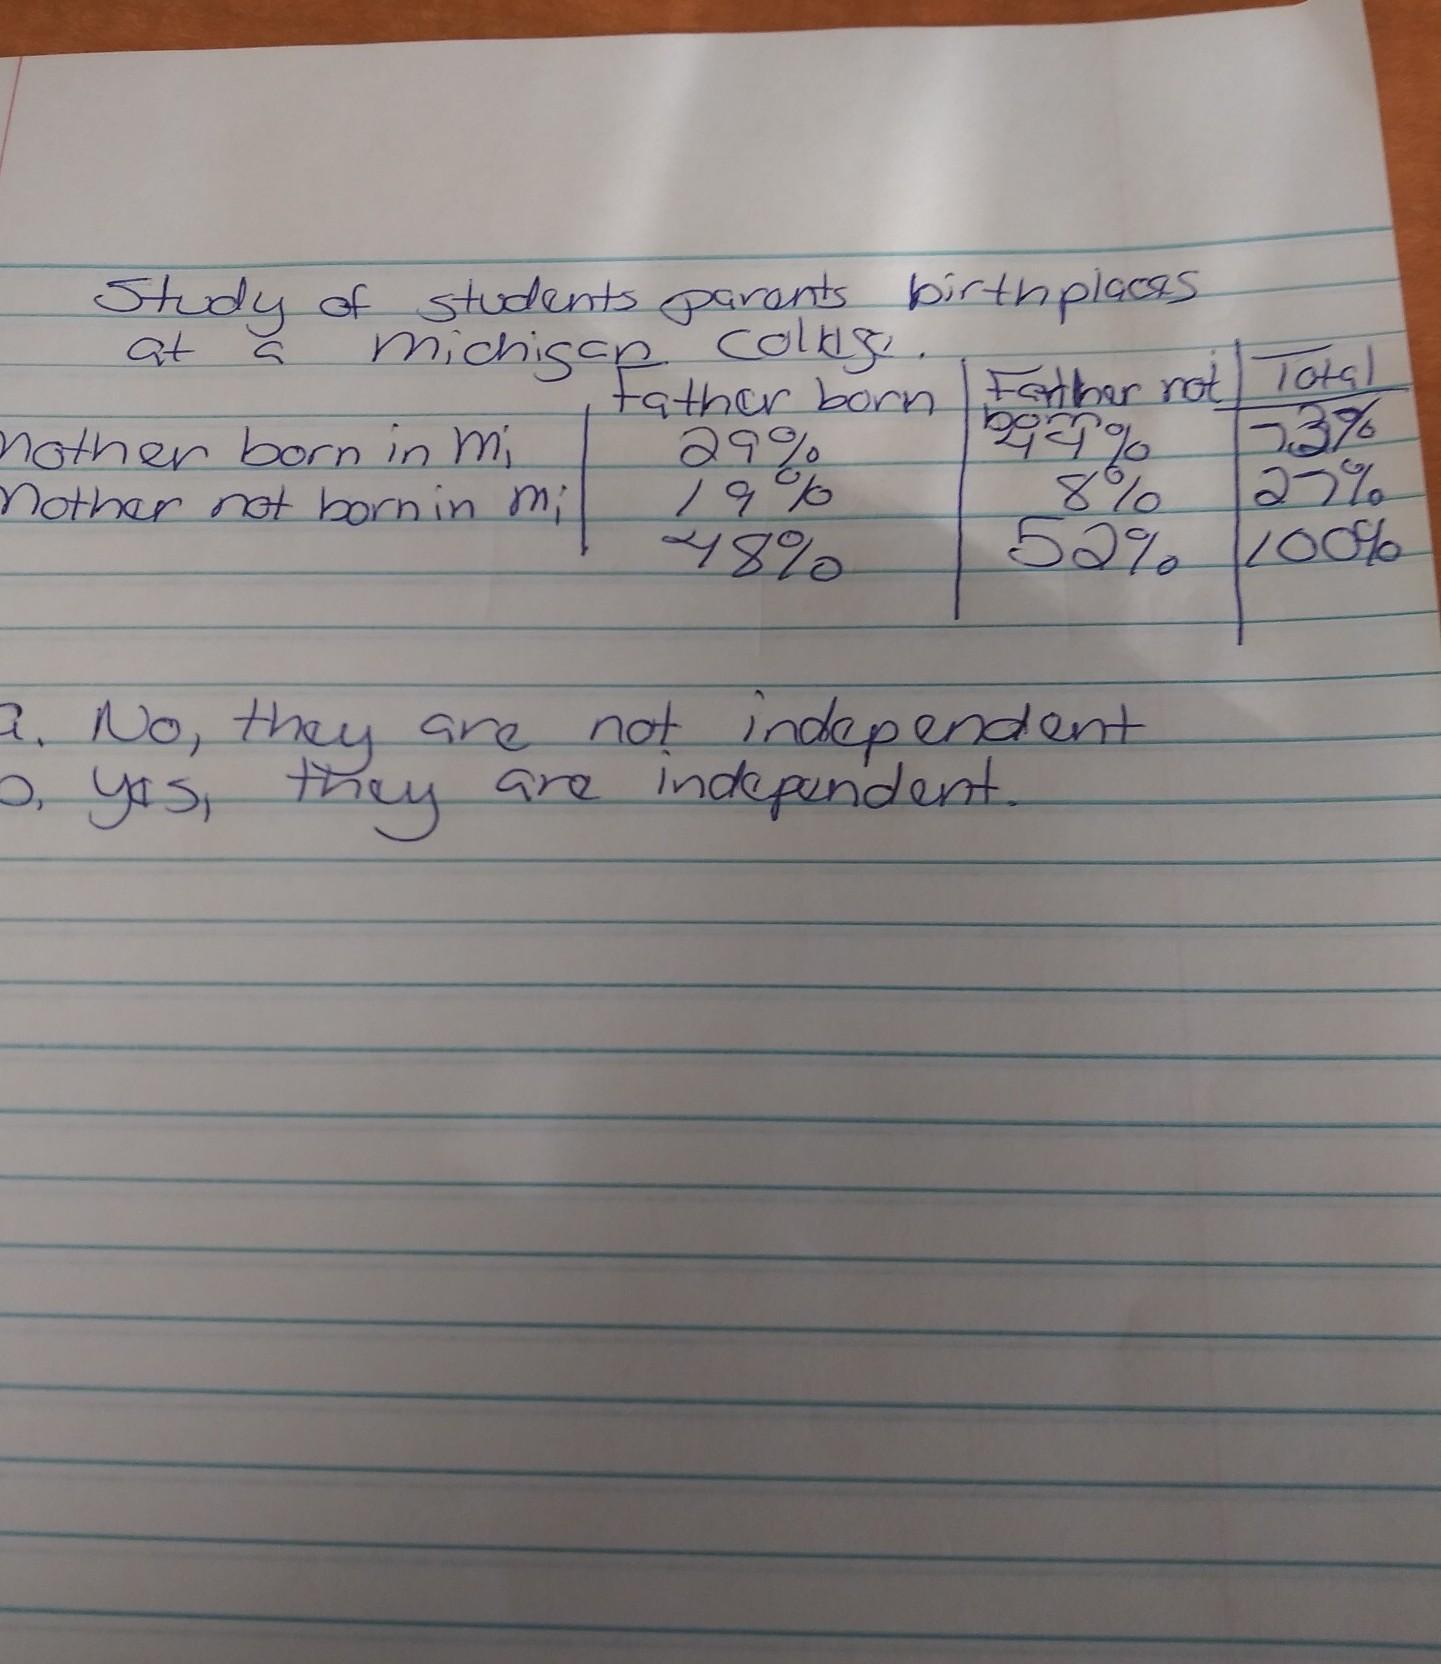 Study of students parents birthplaces
at a michigan
Father born Father not Total
born
Mother born in Mi 29% 44% 73%
Mother not born in Mi 19% 8% 27%
48% 52% 100%
a. No, they are not independent
b. yes, they are independent.